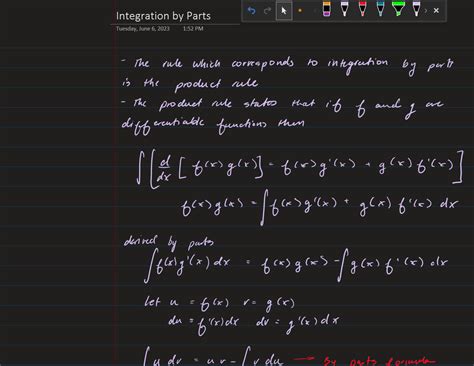 Integration by Parts
Tuesday, June 6, 2023 1:52 PM
- The rule which corresponds to integration by parts
is the product rule
- The product rule states that if f and g are
differentiable functions then
∫[d/dx [f(x)g(x)] = f(x)g'(x) + g(x)f'(x)]
f(x)g(x) = ∫f(x)g'(x) + g(x)f'(x) dx
derived by parts
∫f(x)g'(x)dx = f(x)g(x) - ∫g(x)f'(x)dx
let u = f(x) v = g(x)
du = f'(x)dx dv = g'(x)dx
∫u dv = uv - ∫v du → By parts formula